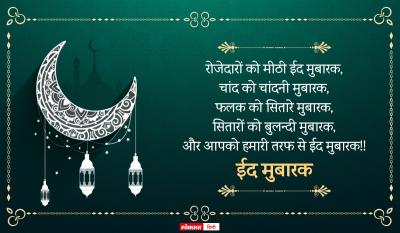 रोजेदारों को मीठी ईद मुबारक,
चांद को चांदनी मुबारक,
फलक को सितारे मुबारक,
सितारों को बुलन्दी मुबारक,
और आपको हमारी तरफ से ईद मुबारक!!
ईद मुबारक
लोकमत हिन्दी